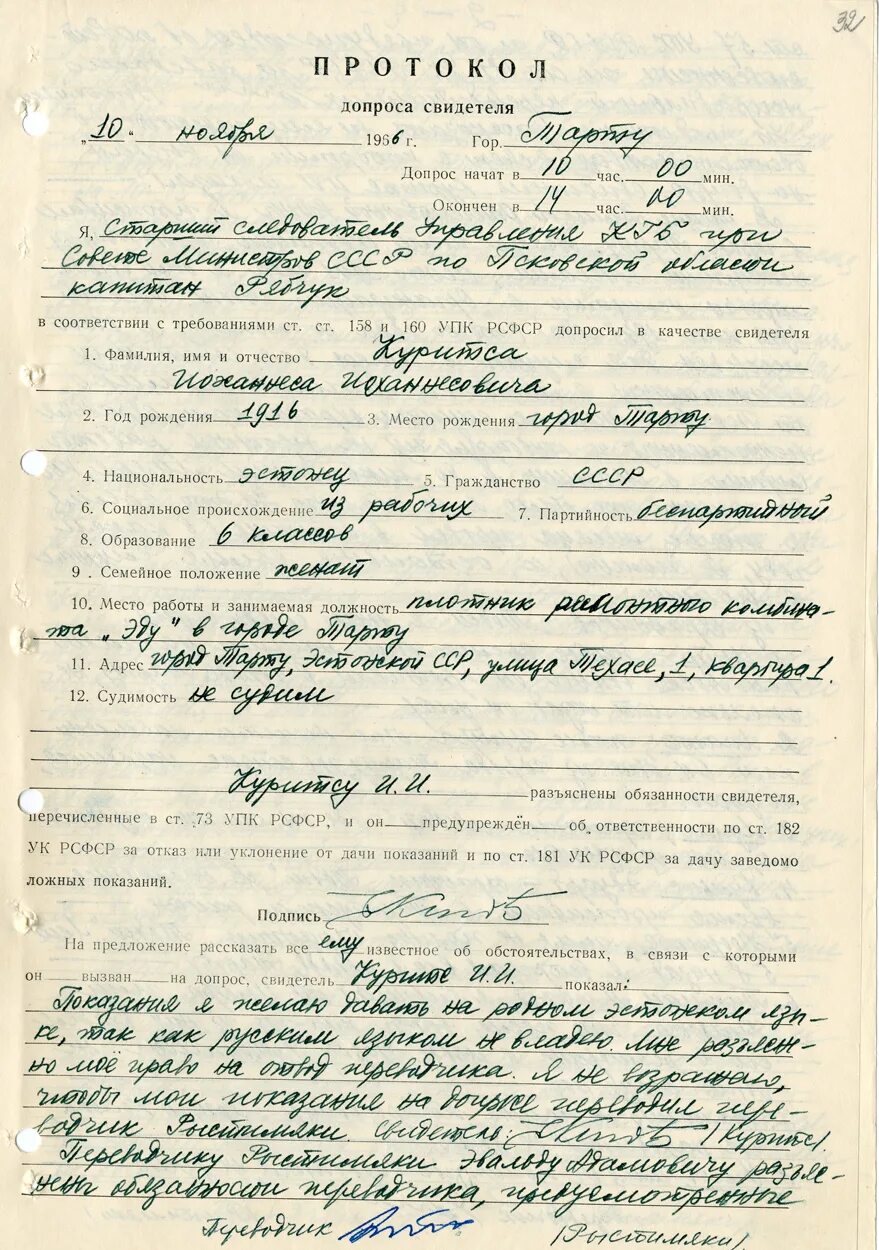 32
ПРОТОКОЛ
допроса свидетеля
„10" ноября 1966 г. Гор. Тарту
Допрос начат в 10 час. 00 мин.
Окончен в 14 час. 00 мин.
Я, старший следователь Управления КГБ при
Совете Министров СССР по Псковской области
капитан Рябчук
в соответствии с требованиями ст. ст. 158 и 160 УПК РСФСР допросил в качестве свидетеля
1. Фамилия, имя и отчество Куритса
Иоханнеса Иоханнесовича
2. Год рождения 1916 3. Место рождения город Тарту
4. Национальность эстонец 5. Гражданство СССР
6. Социальное происхождение из рабочих 7. Партийность беспартийный
8. Образование 6 классов
9. Семейное положение женат
10. Место работы и занимаемая должность плотник ремонтного комбина-
та „Эду" в городе Тарту
11. Адрес город Тарту, Эстонской ССР, улица Техасе, 1, квартира 1.
12. Судимость не судим
Куритсу И.И. разъяснены обязанности свидетеля,
перечисленные в ст. 73 УПК РСФСР, и он предупреждён об ответственности по ст. 182
УК РСФСР за отказ или уклонение от дачи показаний и по ст. 181 УК РСФСР за дачу заведомо
ложных показаний.
Подпись
На предложение рассказать все ему известное об обстоятельствах, в связи с которыми
он вызван на допрос, свидетель Куритс И.И. показал:
Показания я желаю давать на родном эстонском язы-
ке, так как русским языком не владею. Мне разъясне-
но моё право на отвод переводчика. Я не возражаю,
чтобы мои показания на допросе переводил пере-
водчик Рыстимяки. Свидетель: /Куритс/.
Переводчику Рыстимяки Эвальду Адамовичу разъяс-
нены обязанности переводчика, предусмотренные
Переводчик /Рыстимяки/